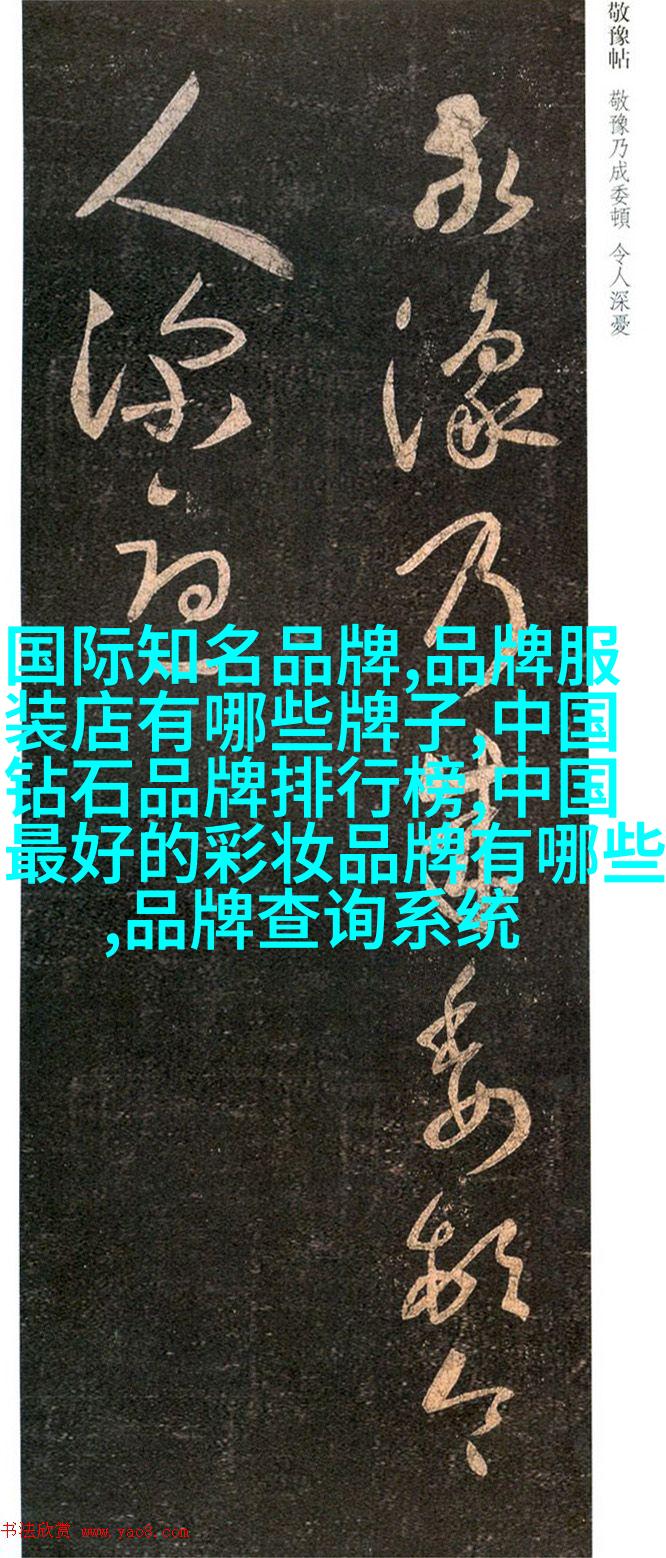 敬豫帖 敬豫乃成委頓 令人深憂
敬豫乃成委頓令
人深憂
国际知名品牌,品牌服
装店有哪些牌子,中国
钻石品牌排行榜,中国
最好的彩妆品牌有哪些
,品牌查询系统
书法欣赏 www.yac8.com